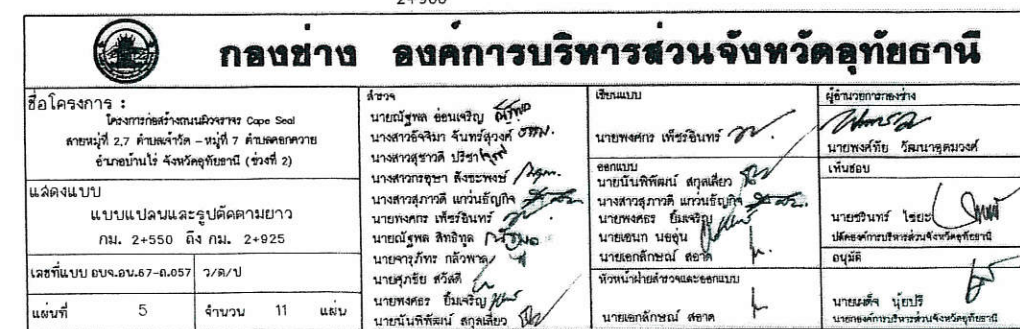 2+900
กองช่าง องค์การบริหารส่วนจังหวัดอุทัยธานี
ชื่อโครงการ :
โครงการก่อสร้างถนนผิวจราจร Cape Seal
สายหมู่ที่ 2,7 ตำบลเจ้าวัด - หมู่ที่ 7 ตำบลคอกควาย
อำเภอบ้านไร่ จังหวัดอุทัยธานี (ช่วงที่ 2)
แสดงแบบ
แบบแปลนและรูปตัดตามยาว
กม. 2+550 ถึง กม. 2+925
เลขที่แบบ อบจ.อน.67-ถ.057 ว/ด/ป
แผ่นที่ 5 จำนวน 11 แผ่น
สำรวจ
นายณัฐพล อ่อนเจริญ
นางสาวอัจจิมา จันทร์สุวงศ์
นางสาวสุชาวดี ปรีชา
นางสาวกรอุษา สังขะพงษ์
นางสาวสุภาวดี แก่วนธัญกิจ
นายพงศกร เพ็ชรอินทร์
นายณัฐพล สิทธิกูล
นายจารุภัทร กลัวพาล
นายศุภชัย สวัสดี
นายพงศธร ยิ้มเจริญ
นายนันพิพัฒน์ สกุลเสี่ยว
เขียนแบบ
นายพงศกร เพ็ชรอินทร์
ออกแบบ
นายนันพิพัฒน์ สกุลเสี่ยว
นางสาวสุภาวดี แก่วนธัญกิจ
นายพงศธร ยิ้มเจริญ
นายเอนก นยอุ่น
นายเอกลักษณ์ สอาด
หัวหน้าฝ่ายสำรวจและออกแบบ
นายเอกลักษณ์ สอาด
ผู้อำนวยการกองช่าง
นายพงศ์ทัย วัฒนาอุดมวงศ์
เห็นชอบ
นายชรินทร์ ไชยะ
ปลัดองค์การบริหารส่วนจังหวัดอุทัยธานี
อนุมัติ
นายเผด็จ นุ้ยปรี
นายกองค์การบริหารส่วนจังหวัดอุทัยธานี